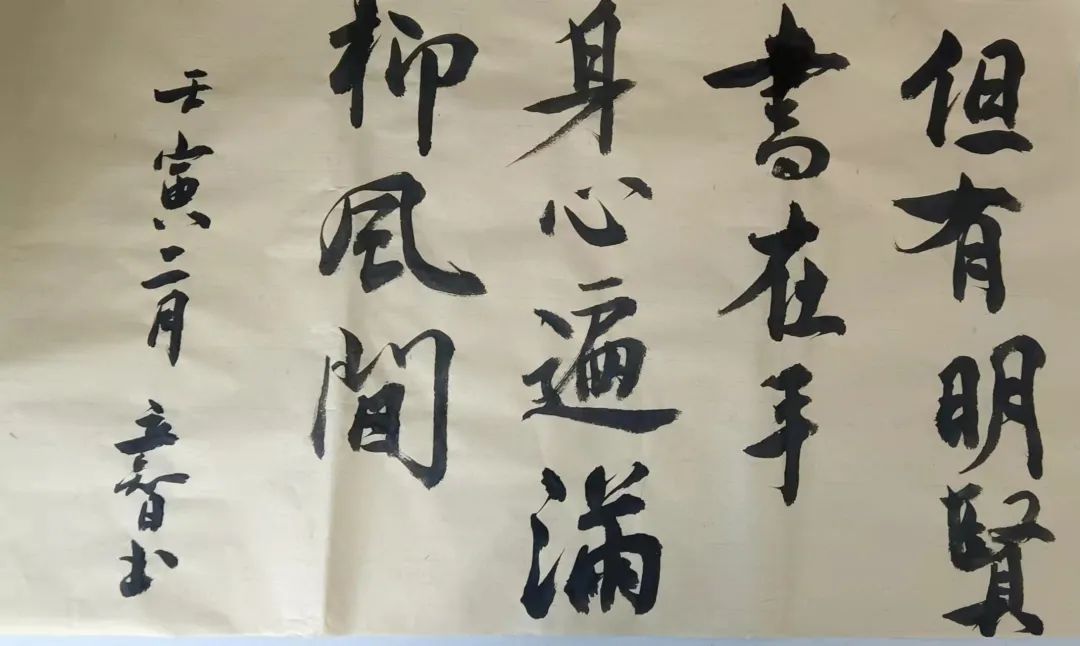 但有明賢
書在手
身心遍滿
柳風間
壬寅二月 立智书